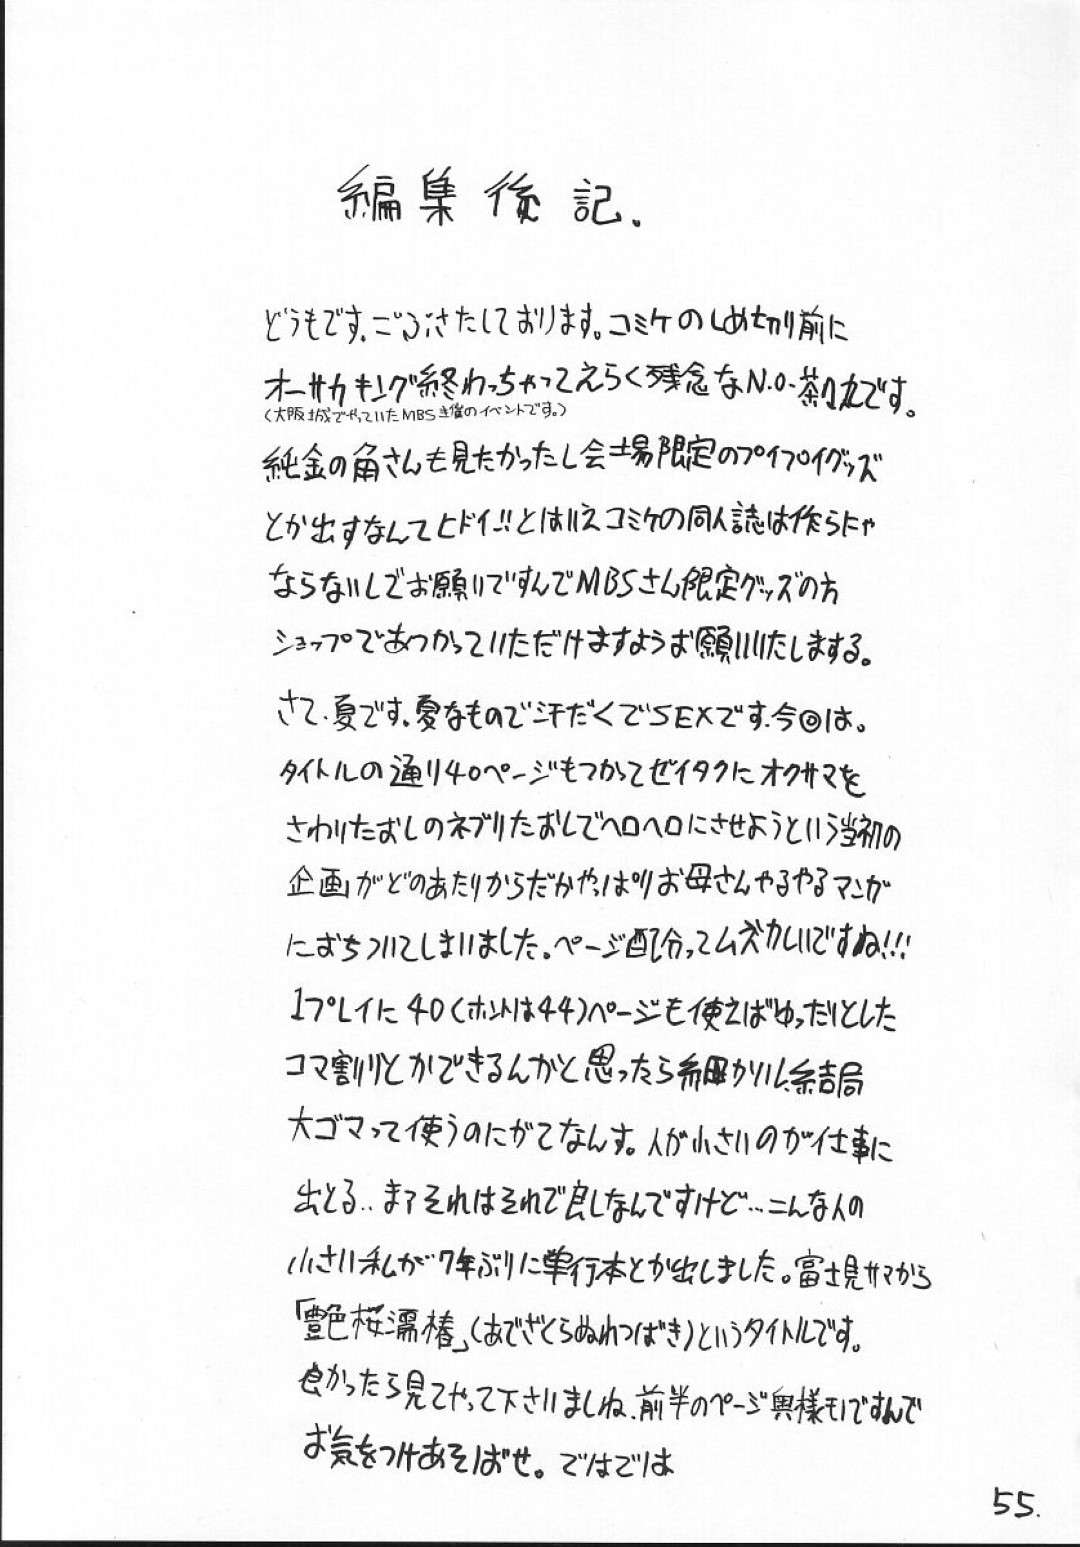 編集後記.
どうもです。ごぶさたしております。コミケのしめ切り前に
オーサカキング終わっちゃってえらく残念なN.O-茶々丸です。
(大阪城でやっていたMBS主催のイベントです。)
純金の角さんも見たかったし会場限定のプイプイグッズ
とか出すなんてヒドイ!!とはいえコミケの同人誌は作らにゃ
ならないしでお願いですんでMBSさん限定グッズの方
ショップであつかっていただけますようお願いいたしまする。
さて、夏です。夏なもので汗だくでSEXです。今回は。
タイトルの通り40ページもつかってゼイタクにオクサマを
さわりたおしのネブリたおしでヘロヘロにさせようという当初の
企画がどのあたりからだかやっぱりお母さんやるやるマンガ
におちついてしまいました。ページ配分ってムズカしいですね!!!
1プレイに40(ホントは44)ページも使えばゆったりとした
コマ割りとかできるんかと思ったら細かいし、結局
大ゴマって使うのにがてなんす。人が小さいのが仕事に
出とる‥まァそれはそれで良しなんですけど…こんな人の
小さい私が7年ぶりに単行本とか出しました。富士見サマから
「艶桜濡椿」(あでざくらぬれつばき)というタイトルです。
良かったら見てやって下さいましね、前半のページ奥様モノですんで
お気をつけあそばせ。ではでは
55.